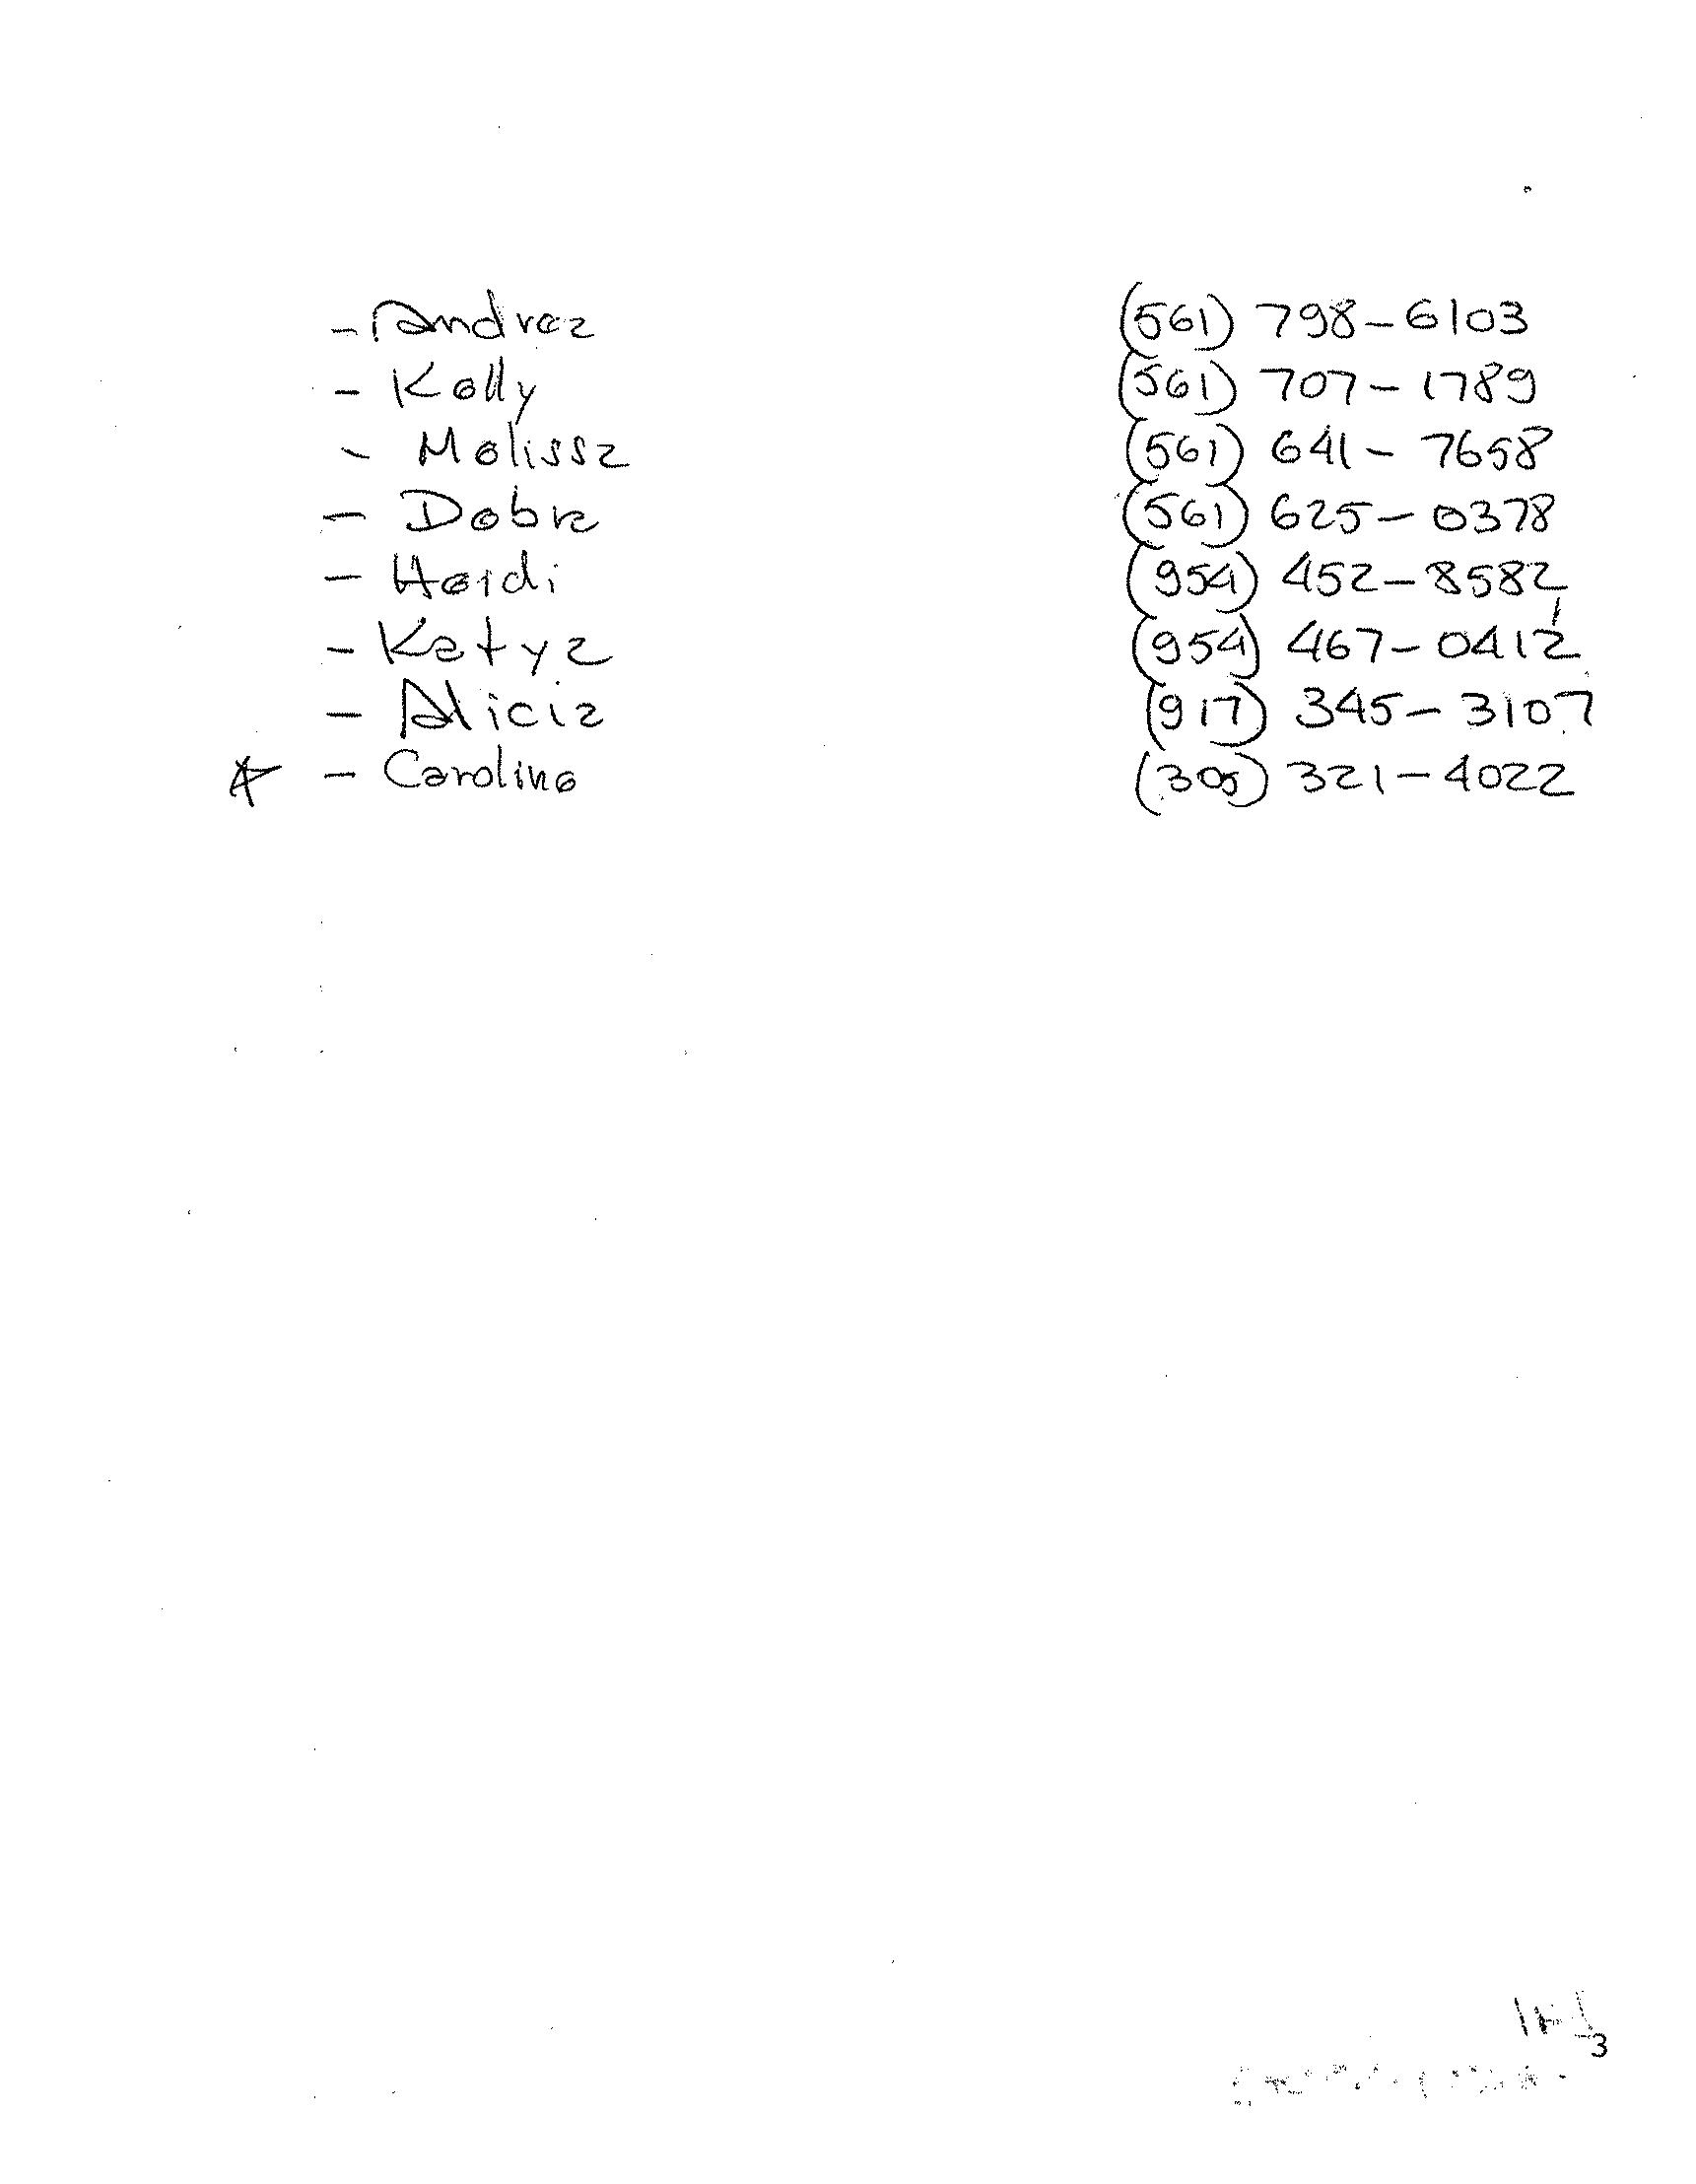 - Andrea (561) 798-6103
- Kelly (561) 707-1789
- Melissa (561) 641-7658
- Debra (561) 625-0378
- Heidi (954) 452-8582
- Katya (954) 467-0412
- Alicia (917) 345-3107
- Carolina (305) 321-4022
3